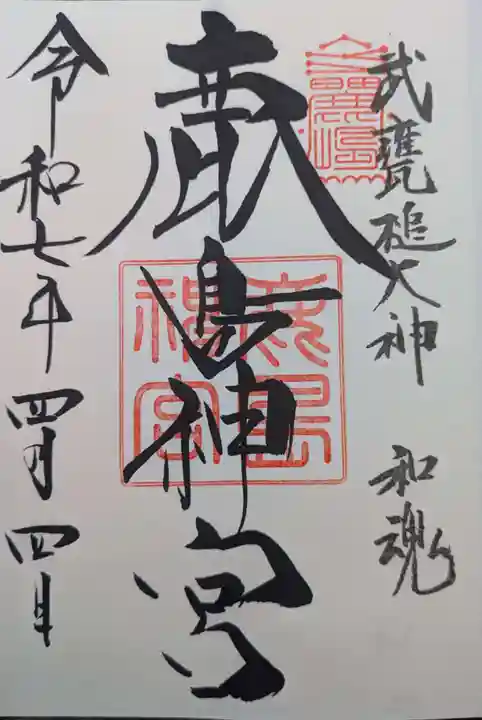 武甕槌大神 和魂
鹿島神宮
鹿島神宮
令和七年四月四日